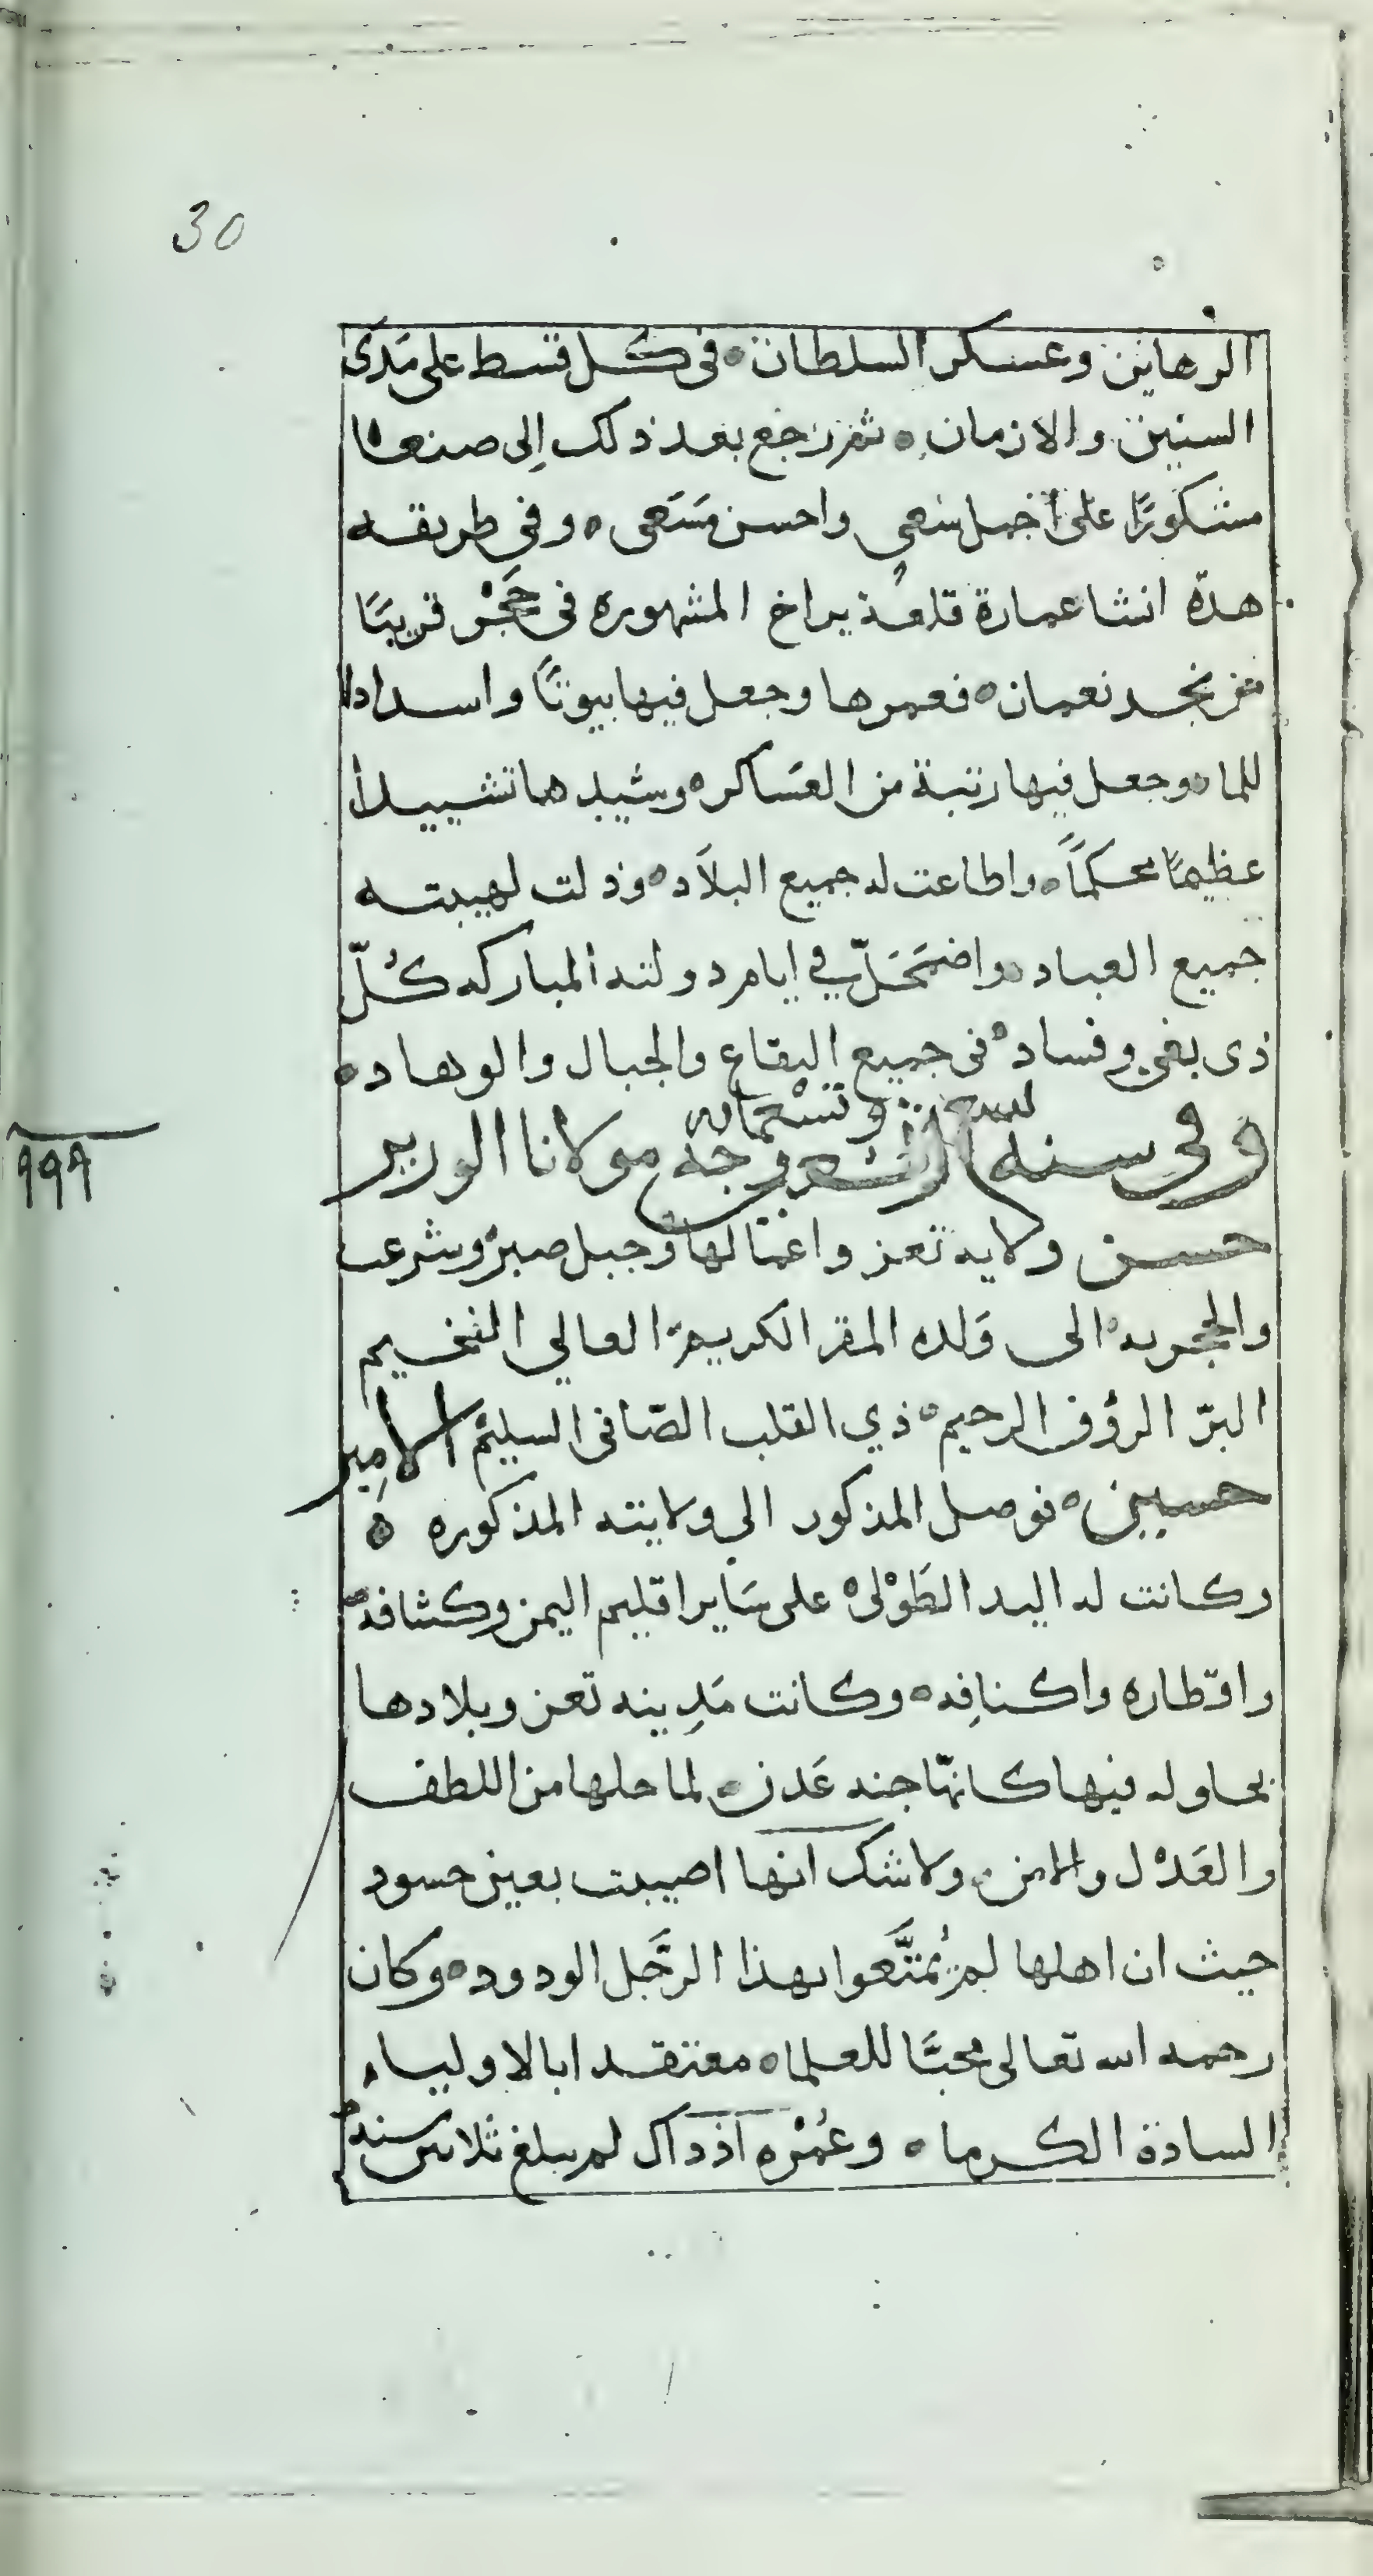 30
الرهاين وعسكر السلطان ه فى كل قسط على مَدَى
السنين والازمان ه ثم رجع بعد ذلك اِلى صنعا
مشكورًا على اجمل سَعي واحسن مَسْعَى ه وفى طريقه
هذه انشا عمارة قلعة يراخ المشهوره فى حَجْر قريبًا
من نجد نعمان ه فعمرها وجعل فيها بيوتًا واسدادا
للما ه وجعل فيها رتبة من العسَاكر ه وشيدها تشييدا
عظيمًا محكمًا ه واطاعت له جميع البلاَد ه وذلت لهيبته
جميع العباد ه واضمَحَلّ في ايام دولته المباركه كُلّ
ذى بغي وفساد ه فى جميع البقاع والجبال والوهاد ه
وتسعمايه
وفى سنه وجه مولانا الوزير
٩٩٩
حسن ولايه تعز واعمالها وجبل صبر وشرعب
والحجريه الى وَلده المقر الكريم العالي الفخيم
البرّ الرؤف الرحيم ه ذي القلب الصّافى السليم الامير
حسين ه فوصل المذكور الى ولايته المذكوره ه
وكانت له اليد الطَوْلى ه على سَاير اقليم اليمن وكشافه
واقطاره واكنافِه ه وكانت مَدِينه تعز وبلادها
بحلوله فيها كانهّا جنه عَدن ه لما حلها من اللطف
والعَدْل والامن ه ولاشك انها اصيبت بعين حسود
حيث ان اهلها لم يُمتَّعوا بهذا الرَّجل الودود ه وكان
رحمه الله تعالى محبًّا للعلما ه معتقدا بالاولياء
السادة الكرما ه وعُمْره اذ ذاك لم يبلغ ثلاثين سنه